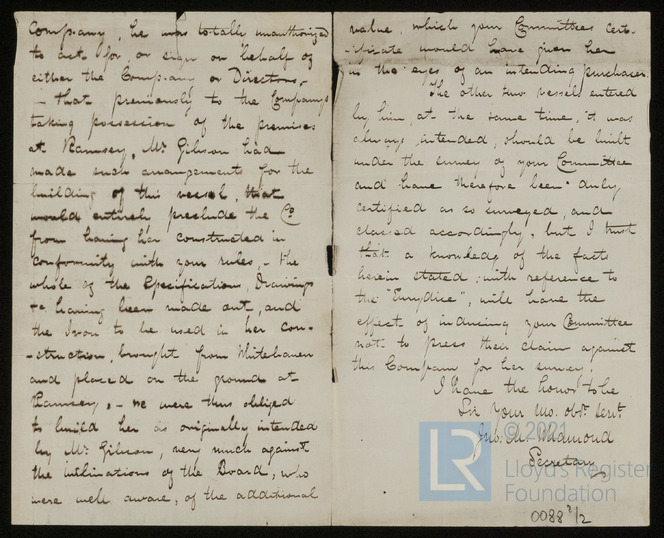 Company, he was totally unauthorized
to act for or sign on behalf of
either the Company or Directors,
- that previously to the Companys
taking possession of the premises
at Ramsey, Mr. Gibson had
made such arrangements for the
building of this vessel, that
would entirely preclude the Co
from having her constructed in
conformity with your rules, - the
whole of the Specification, Drawings
&c having been made out, and
the Iron to be used in her con-
-struction, brought from Whitehaven
and placed on the ground at
Ramsey, - we were thus obliged
to build her as originally intended
by Mr. Gibson, very much against
the inclinations of the Board, who
were well aware, of the additional
value, which your Committees cert-
-ificate would have given her
in the eyes of an intending purchaser.
The other two vessels entered
by him, at the same time, it was
always intended, should be built
under the survey of your Committee
and have therefore been duly
certified as so surveyed, and
classed accordingly, but I trust
that a knowledge of the facts
herein stated, with reference to
the "Eurydice", will have the
effect of inducing your Committee
not to press their claim against
this Company for her survey.
I have the honor to be
Sir Your mo. obt. Servt.
Jno. M.
Secretary
© 2021
LR
Lloyd's Register
Foundation
0088 2/2